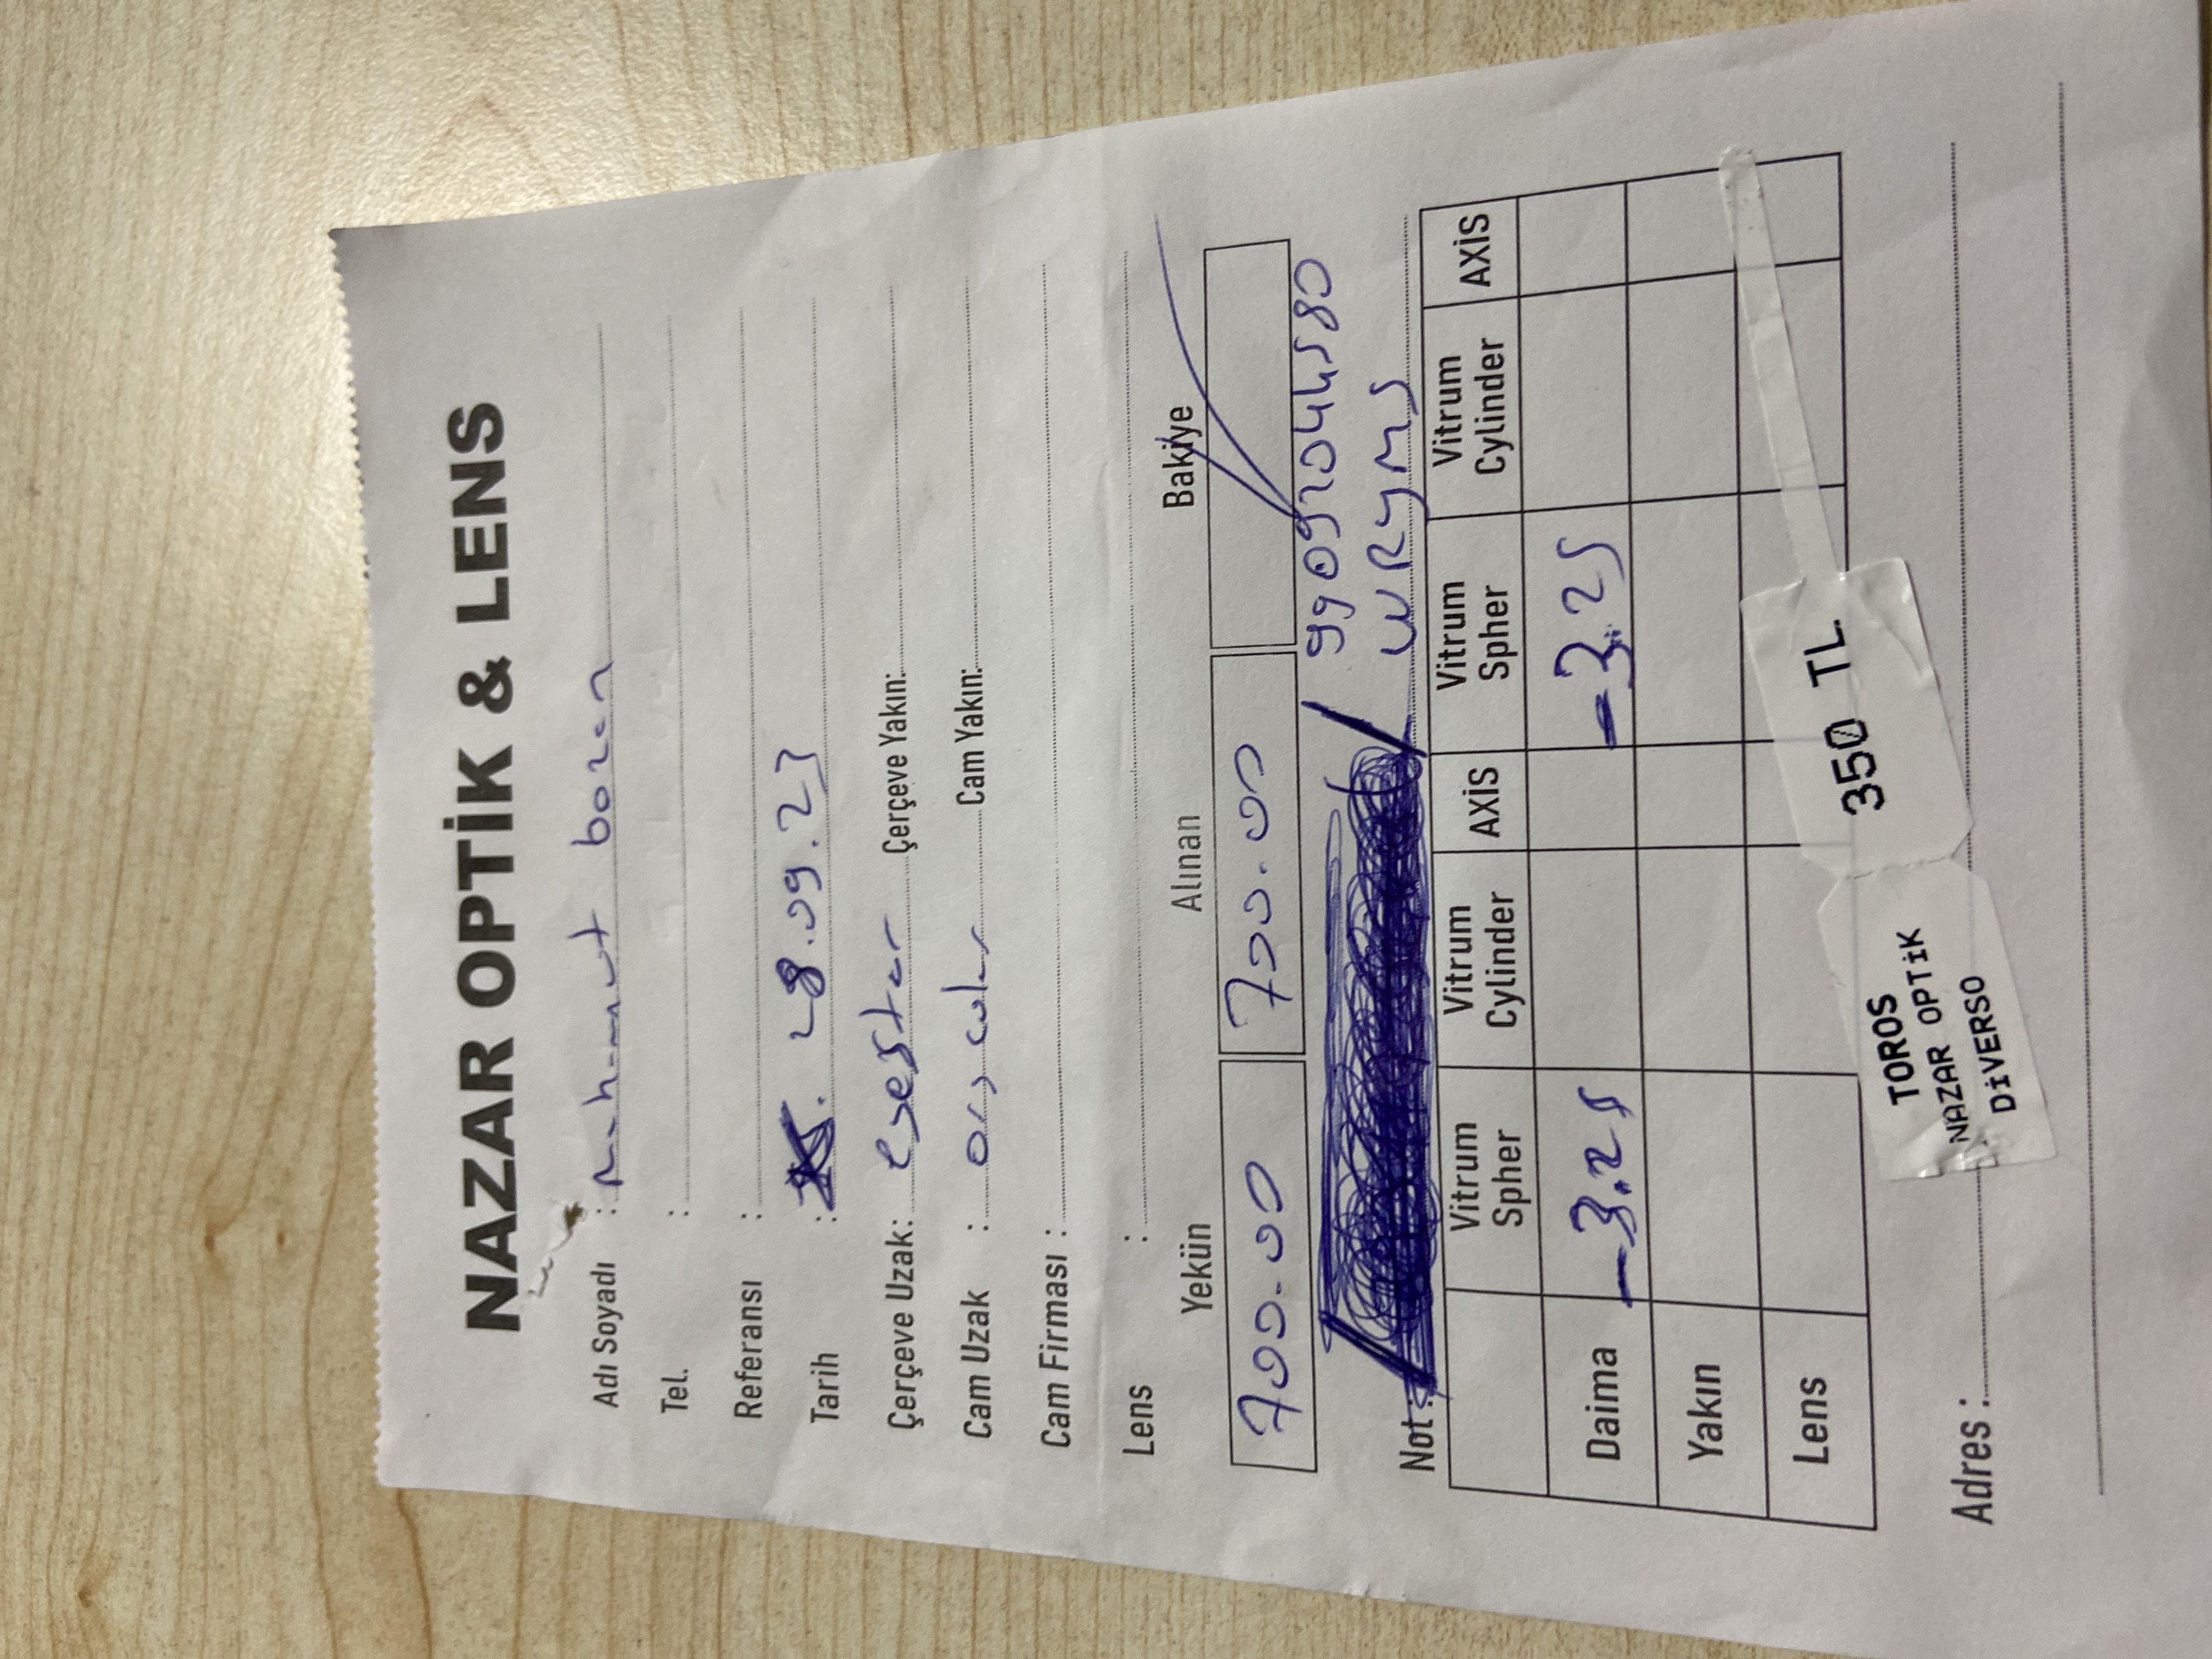 NAZAR OPTİK & LENS
Adı Soyadı : mahmut bozan
Tel. :
Referansı :
Tarih : 28.09.23
Çerçeve Uzak: Çerçeve Yakın:
Cam Uzak : Cam Yakın:
Cam Firması :
Lens :
Yekün Alınan Bakiye
700.00 700.00
99092044580
Not : WRYMS
Vitrum Spher Vitrum Cylinder AXİS Vitrum Spher Vitrum Cylinder AXİS
Daima -3.25 -3.25
Yakın
Lens
350 TL
TOROS
NAZAR OPTİK
DİVERSO
Adres :